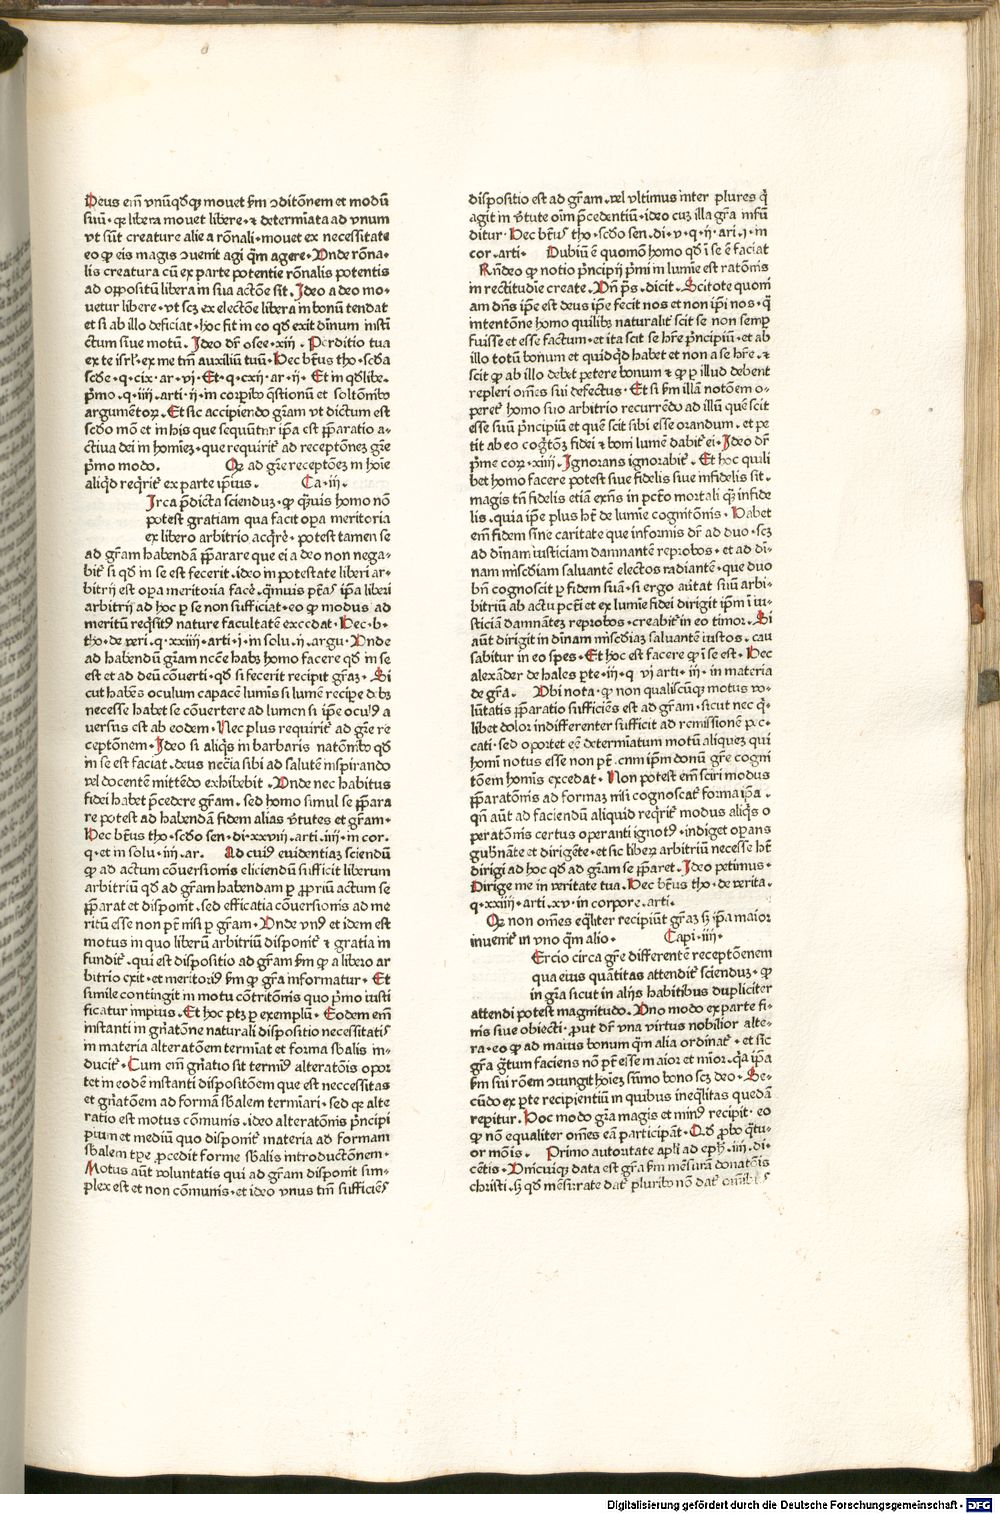 Deus em̄ vnūqdqꝫ mouet ẜm ɔditōnem et modū
suū · qꝛ libera mouet libere · ⁊ determīata ad vnum
vt sūt creature alie a rōnali · mouet ex necessitate
eo ꝙ eis magis ɔuenit agi q̄m agere · Vnde rōna-
lis creatura cū ex parte potentie rōnalis potentis
ad oppositū libera in sua actōe sit . Ideo a deo mo-
uetur libere · vt scꝫ ex electōe libera in bonū tendat
et si ab illo deficiat · hoc fit in eo qd exit dīnum insti
ctum siue motū . Ideo dr̄ osee · xiij · Perditio tua
ex te isrl · ex me tm̄ auxiliū tuū · Hec bt̄us tho · scd̄a
scd̄e · q · cix · ar · vi · Et · q · cxij · ar · ij · Et in qdlibe ·
p̄mo · q · iiij · arti · ij · in corpībꝰ q̄stionū et soltōnibꝰ
argumētoꝝ . Et sic accipiendo gr̄am vt dictum est
scd̄o mō et in his que sequūtur ip̄a est p̄paratio a-
ctiua dei in homīeꝫ · que requirit᷑ ad receptōneꝫ gr̄e
p̄mo modo . Qꝫ ad gr̄e receptōeꝫ in hoīe
aliqd req̄rit᷑ ex parte ip̄ius . Ca · iij ·
Irca p̄dicta sciendum · ꝙ q̄uis homo nō
potest gratiam qua facit oꝑa meritoria
ex libero arbitrio acq̄rē · potest tamen se
ad gr̄am habendā p̄parare que ei a deo non nega-
bit᷑ si qd in se est fecerit . ideo in potestate liberi ar-
bitrij est oꝑa meritoria facē . q̄muis p̄tās ip̄a liberi
arbitrij ad hoc ꝑ se non sufficiat · eo ꝙ modus ad
meritū req̄sitꝰ nature facultatē excedat · Hec · b ·
tho · de veri · q · xxiiij · arti · j · in solu · ij · argu · Vnde
ad habendū gr̄am nccē habꝫ homo facere qd in se
est et ad deū cōuerti · qd si fecerit recipit gr̄aꝫ · Si
cut habēs oculum capacē lumīs si lumē recipe dꝫ
necesse habet se cōuertere ad lumen si ip̄e oculꝰ a
versus est ab eodem · Nec plus requirit᷑ ad gr̄e re
ceptōnem · Ideo si aliq̄s in barbaris natōnibꝰ qd
in se est faciat . deus nccīa sibi ad salutē inspirando
vel docentē mittēdo exhibebit . Vnde nec habitus
fidei habet p̄cedere gr̄am . sed homo simul se p̄para
re potest ad habendā fidem alias v̄tutes et gr̄am ·
Hec bt̄us tho · scd̄o sen · di · xxviij · arti · iiij · in cor .
q · et in solu · iiij · ar . Ad cuiꝰ euidentiaꝫ sciendū
ꝙ ad actum cōuersionis eliciendū sufficit liberum
arbitriū qd ad gr̄am habendam ꝑ ꝓpriū actum se
p̄parat et disponit . sed efficatia cōuersionis ad me
ritū esse non pt̄ nisi ꝑ gr̄am · Vnde vnꝰ et idem est
motus in quo liberū arbitriū disponit᷑ ⁊ gratia in
fundit᷑ . qui est dispositio ad gr̄am ẜm ꝙ a libero ar
bitrio exit · et meritoriꝰ ẜm ꝙ gr̄a informatur · Et
simile contingit in motu cōtritōnis quo p̄mo iusti
ficatur impius . Et hoc ptꝫ ꝑ exemplū · Eodem em̄
instanti in gn̄atōne naturali dispositio necessitatis
in materia alteratōem termīat et forma sb̄alis in-
ducit᷑ · Cum em̄ gn̄atio sit terminꝰ alteratōis opor
tet in eodē instanti dispositōem que est neccessitas
et gn̄atōem ad formā sb̄alem termīari · sed qꝛ alte
ratio est motus cōmunis . ideo alteratōnis p̄ncipi
pium et mediū quo disponit᷑ materia ad formam
sb̄alem tꝑe ꝓcedit forme sb̄alis introductōnem ·
Motus aūt voluntatis qui ad gr̄am disponit sim-
plex est et non cōmunis · et ideo vnus tm̄ sufficiēs
dispositio est ad gr̄am . vel vltimus inter plures q̄
agit in v̄tute oīm p̄cedentiū · ideo cuꝫ illa gr̄a infū
ditur · Hec bt̄us tho · scd̄o sen . di · v · q · ij · ari · j · in
cor · arti · Dubiū ē quomō homo qd ī se ē faciat
Rn̄deo ꝙ notio p̄ncipij p̄mi in lumīe est ratōnis
in rectitudīe create . Vn̄ p̄s . dicit . Scitote quoni
am dn̄s ip̄e est deus ip̄e fecit nos et non ip̄i nos · q̄
intentōne homo quilibꝫ naturalit᷑ scit se non semꝑ
fuisse et esse factum · et ita scit se hr̄e p̄ncipiū · et ab
illo totū bonum et quidqd habet et non a se hr̄e . ⁊
scit ꝙ ab illo debet petere bonum ⁊ ꝙ ꝑ illud debent
repleri om̄es sui defectus · Et si ẜm illā notōem o-
peret᷑ homo suo arbitrio recurrēdo ad illū quē scit
esse suū p̄ncipiū et quē scit sibi esse orandum . et pe
tit ab eo coḡtōꝫ fidei ⁊ boni lumē dabit᷑ ei · Ideo dr̄
p̄me coꝝ · xiiij · Ignorans ignorabit᷑ . Et hoc quili
bet homo facere potest siue fidelis siue infidelis sit .
magis tn̄ fidelis etiā exn̄s in pctō mortali q̄ꝫ infide
lis . quia ip̄e plus ht̄ de lumīe cognitōnis · Habet
em̄ fidem sine caritate que informis dr̄ ad duo · scꝫ
ad dīnam iusticiam damnantē reprobos · et ad di-
nam mīscd̄iam saluantē electos radiantē · que duo
bn̄ cognoscit ꝑ fidem suā · si ergo aūtat suū arbi-
bitriū ab actu pctī et ex lumīe fidei dirigit ip̄m ī iu-
sticiā damnāteꝫ reprobos · creabit᷑ in eo timor . Si
aūt dirigit in dīnam mīscd̄iaꝫ saluantē iustos . cau
sabitur in eo spes · Et hoc est facere ꝙ ī se est · Hec
alexāder de hales ꝑte · iij · q vi arti · iij · in materia
de gr̄a . Vbi nota · ꝙ non qualiscūqꝫ motus vo-
lūtatis p̄paratio sufficiēs est ad gr̄am · sicut nec q̄-
libet dolor indifferenter sufficit ad remissionē pec-
cati · sed oportet eē determīatum motū aliqueꝫ qui
homī notus esse non pt̄ . cum ip̄m donū gr̄e cogni
tōem homīs excedat · Non potest em̄ sciri modus
p̄paratōnis ad formaꝫ nisi cognoscat᷑ forma ip̄a .
qn̄ aūt ad faciendū aliquid req̄rit᷑ modus aliq̄s o
peratōnis certus operanti ignotꝰ · indiget oꝑans
gub̄nāte et dirigēte · et sic libeꝝ arbitriū necesse ht̄
dirigi ad hoc qd ad gr̄am se p̄paret . Ideo petimus ·
Dirige me in veritate tua . Hec bt̄us tho · de verita .
q · xxiiij · arti · xv · in corpore . arti ·
Qꝫ non om̄es eq̄liter recipiūt gr̄aꝫ sꝫ ip̄a maior
inuenit᷑ in vno q̄m alio · Capi · iiij ·
Ercio circa gr̄e differentē receptōenem
qua eius quātitas attendit᷑ sciendum · ꝙ
in gr̄a sicut in alijs habitibus dupliciter
attendi potest magnitudo . Vno modo ex parte fi-
nis siue obiecti · ꝓut dr̄ vna virtus nobilior alte-
ra · eo ꝙ ad maius bonum q̄m alia ordinat᷑ · et sic
gr̄a ḡtum faciens nō pt̄ esse maior et mīor . q̄a ip̄a
ẜm sui rōem ɔiungit hoīeꝫ sūmo bono scꝫ deo · Se-
cūdo ex ꝑte recipientiū in quibus ineq̄litas quedā
reꝑitur . Hoc modo gr̄a magis et minꝰ recipit · eo
ꝙ nō equaliter om̄es eā participāt · Qd ꝓbo q̄tu-
or mōis . Primo autoritate apl̄i ad eph̄ . iiij . di-
cētis · Vnicuiqꝫ data est gr̄a ẜm mēsurā donatōis
christi . sꝫ qd mēsurate dat᷑ pluribꝰ nō dat᷑ om̄ibꝰ

Digitalisierung gefördert durch die Deutsche Forschungsgemeinschaft - DFG